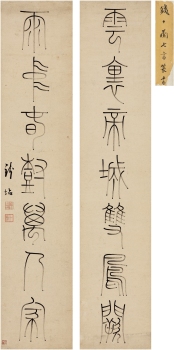 錢十蘭七言篆書
雲裏帝城雙鳳闕
雨中春樹萬人家
錢坫